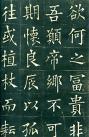 欲何之富貴非
吾願帝鄉不可
期懷良辰以孤
往或植杖而耘